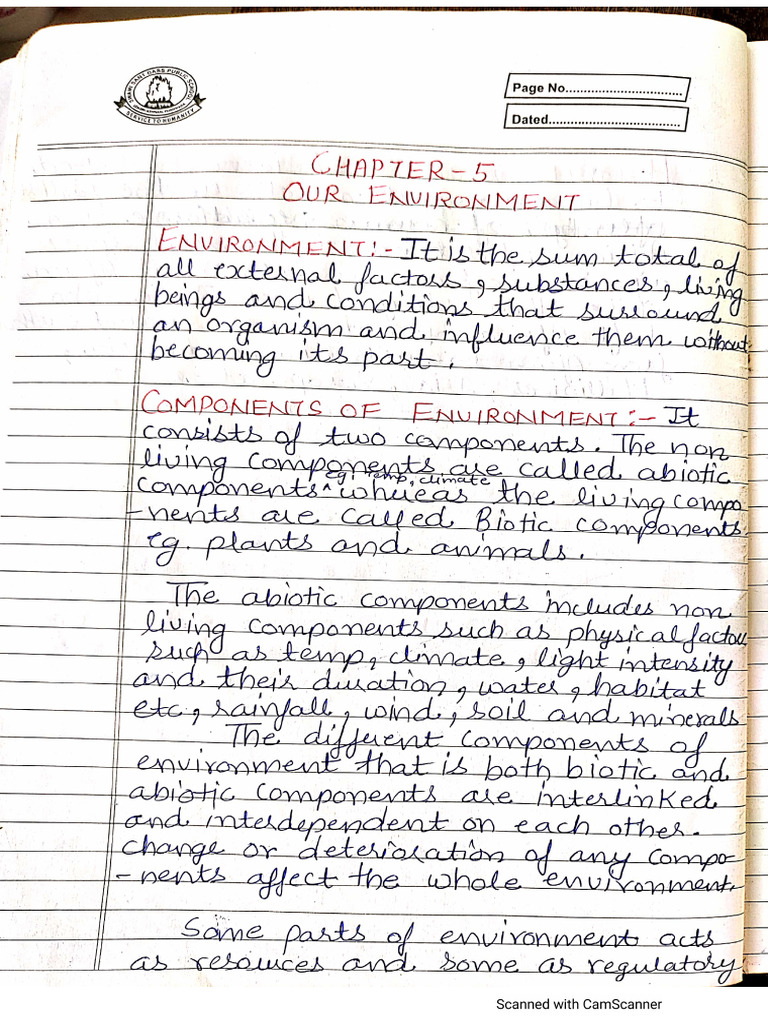 SHRI SANT DASS PUBLIC SCHOOL
SERVICE TO HUMANITY
Page No................................
Dated....................................
CHAPTER-5
OUR ENVIRONMENT
ENVIRONMENT:- It is the sum total of
all external factors, substances, living
beings and conditions that surround
an organism and influence them without
becoming its part.
COMPONENTS OF ENVIRONMENT:- It
consists of two components. The non
living components are called abiotic
eg: temp, climate
components ^ whereas the living compo
-nents are called Biotic components.
eg. plants and animals.
The abiotic components includes non
living components such as physical factors
such as temp, climate, light intensity
and their duration, water, habitat
etc, rainfall, wind, soil and minerals
The different components of
environment that is both biotic and
abiotic components are interlinked
and interdependent on each other.
change or deterioration of any compo-
-nents affect the whole environment.
Some parts of environment acts
as resources and some as regulatory
Scanned with CamScanner